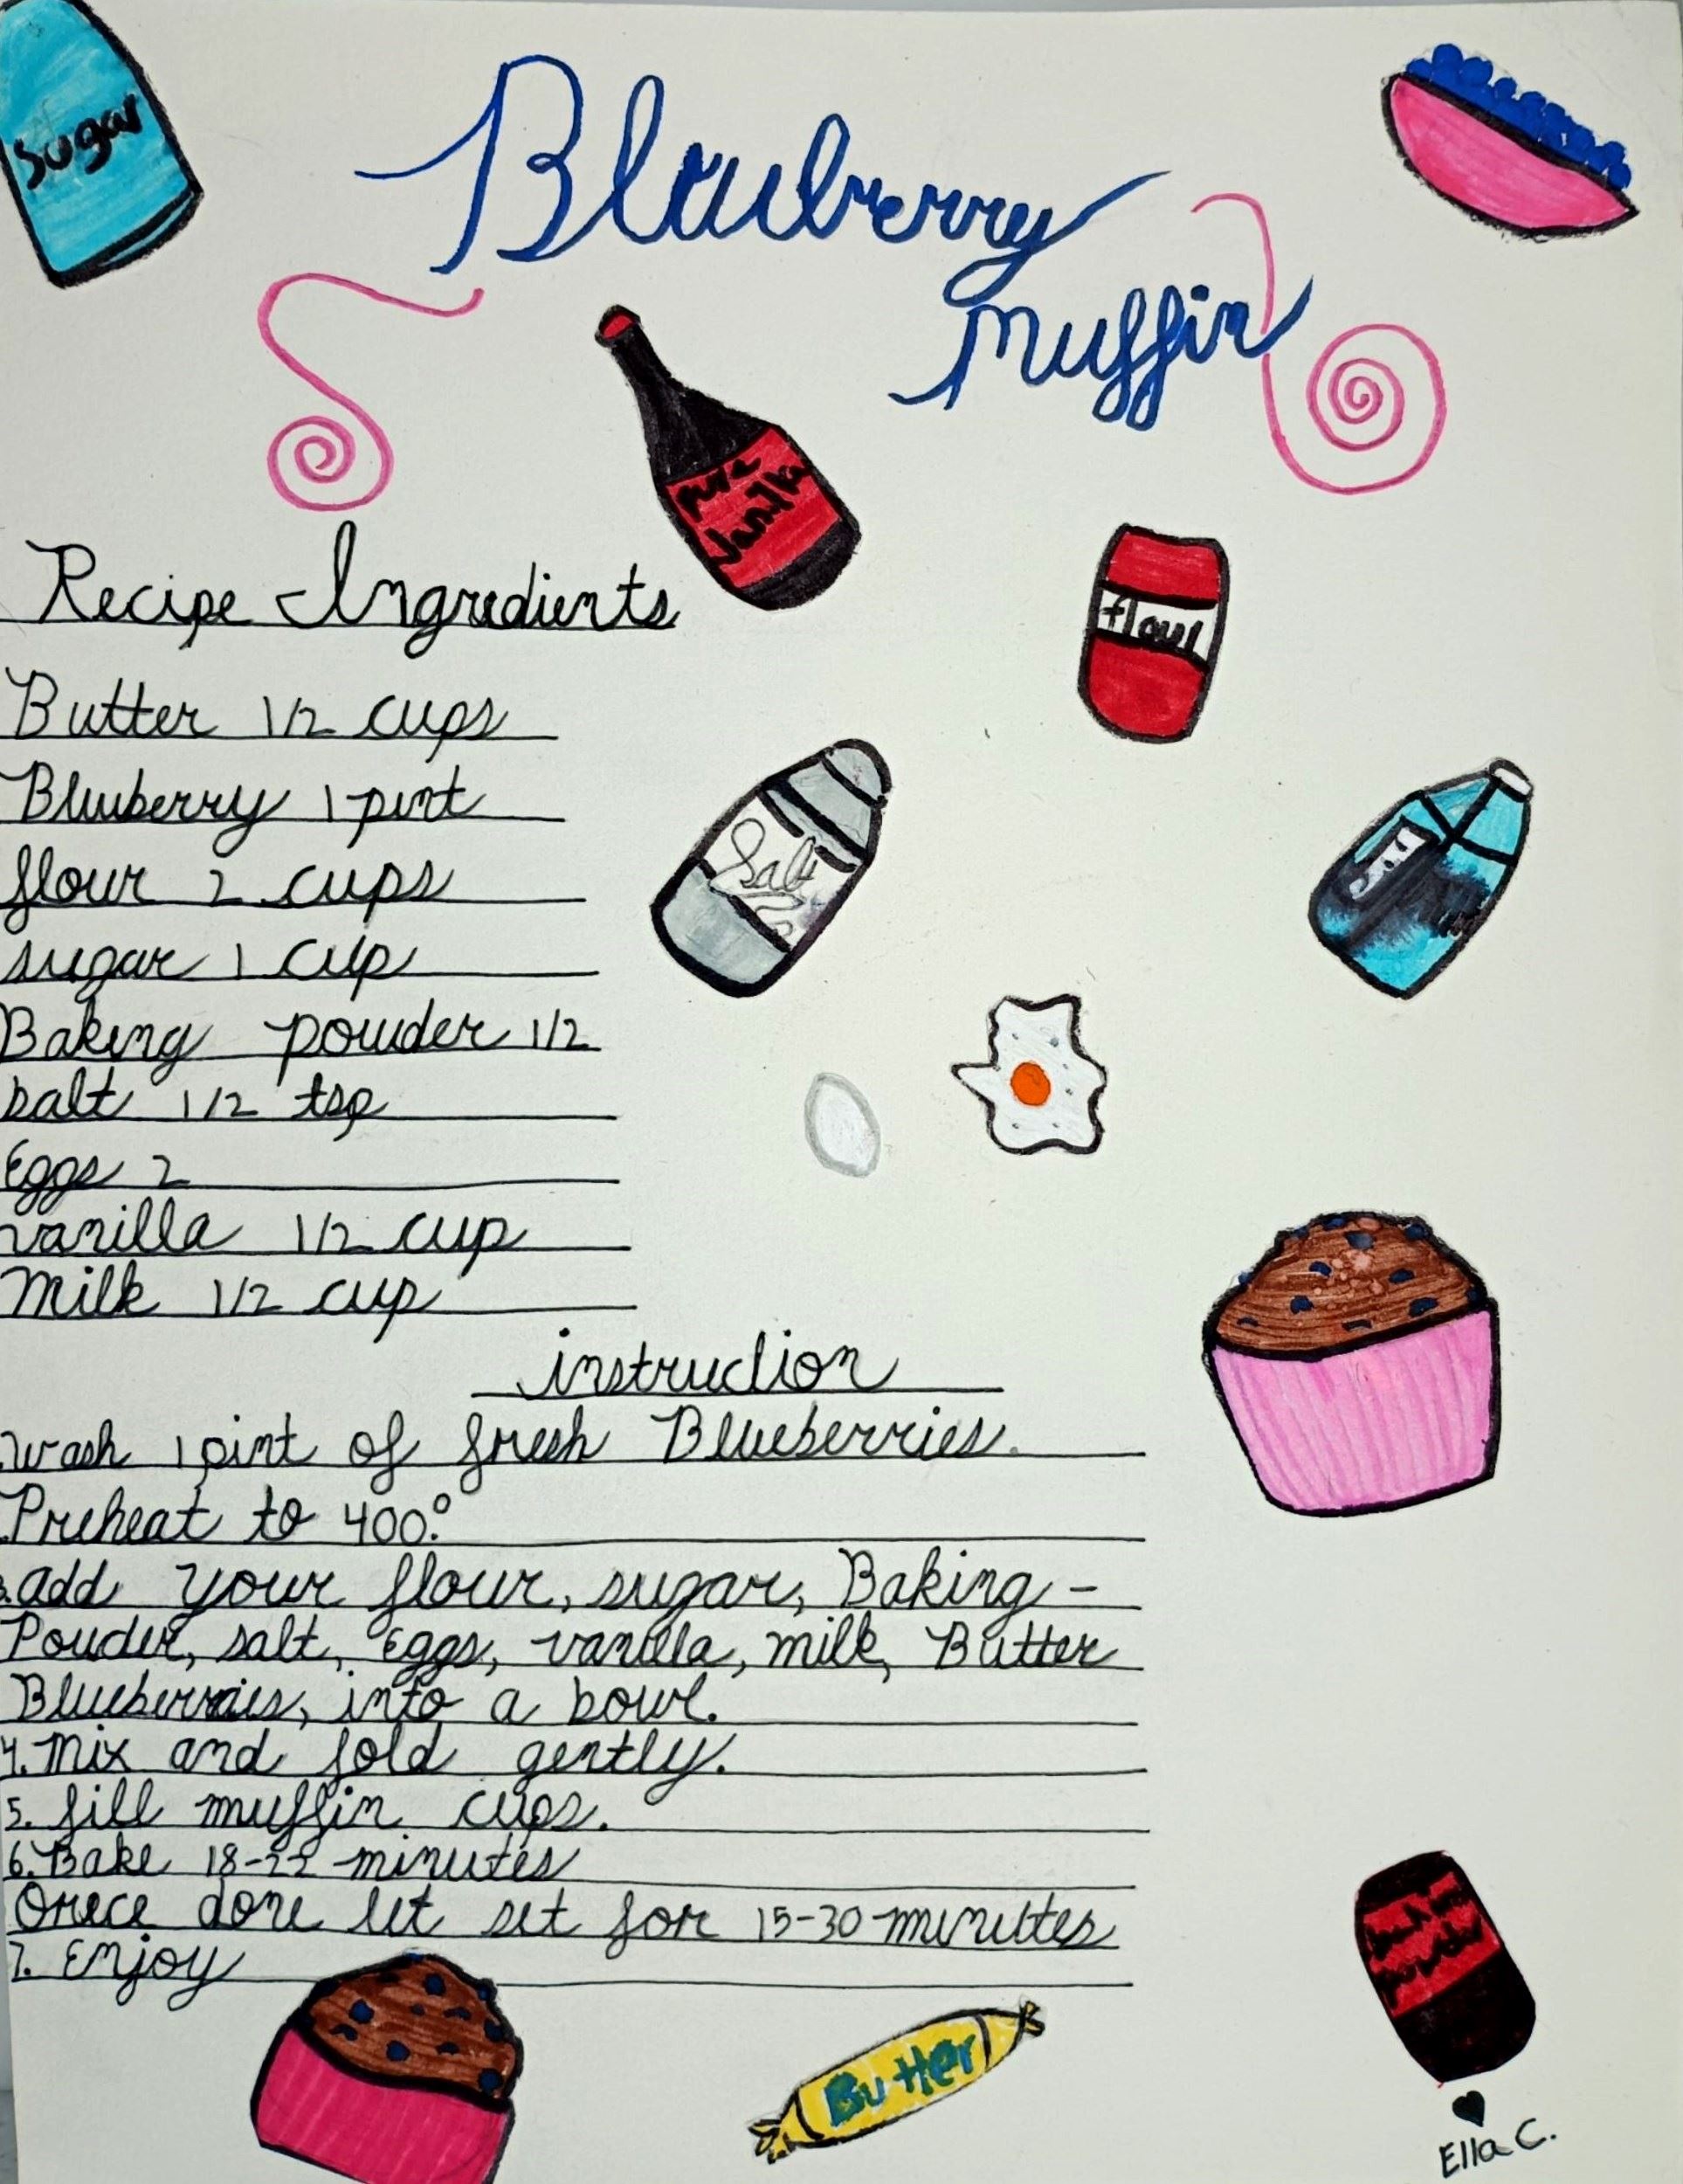 Sugar
Blueberry
Muffin
pure
vanilla
flour
Recipe Ingredients
Butter 1/2 cups
Blueberry 1 pint
flour 2 cups
sugar 1 cup
Baking powder 1/2
salt 1/2 tsp
Eggs 2
vanilla 1/2 cup
Milk 1/2 cup
Salt
instruction
wash 1 pint of fresh Blueberries.
Preheat to 400.°
3. add your flour, sugar, Baking -
Powder, salt, Eggs, vanilla, milk, Butter
Blueberries, into a bowl.
4. Mix and fold gently.
5. fill muffin cups.
6. Bake 18-22 minutes
Onece done let set for 15-30 minuttes
7. Enjoy
baking
powder
Butter
Ella C.